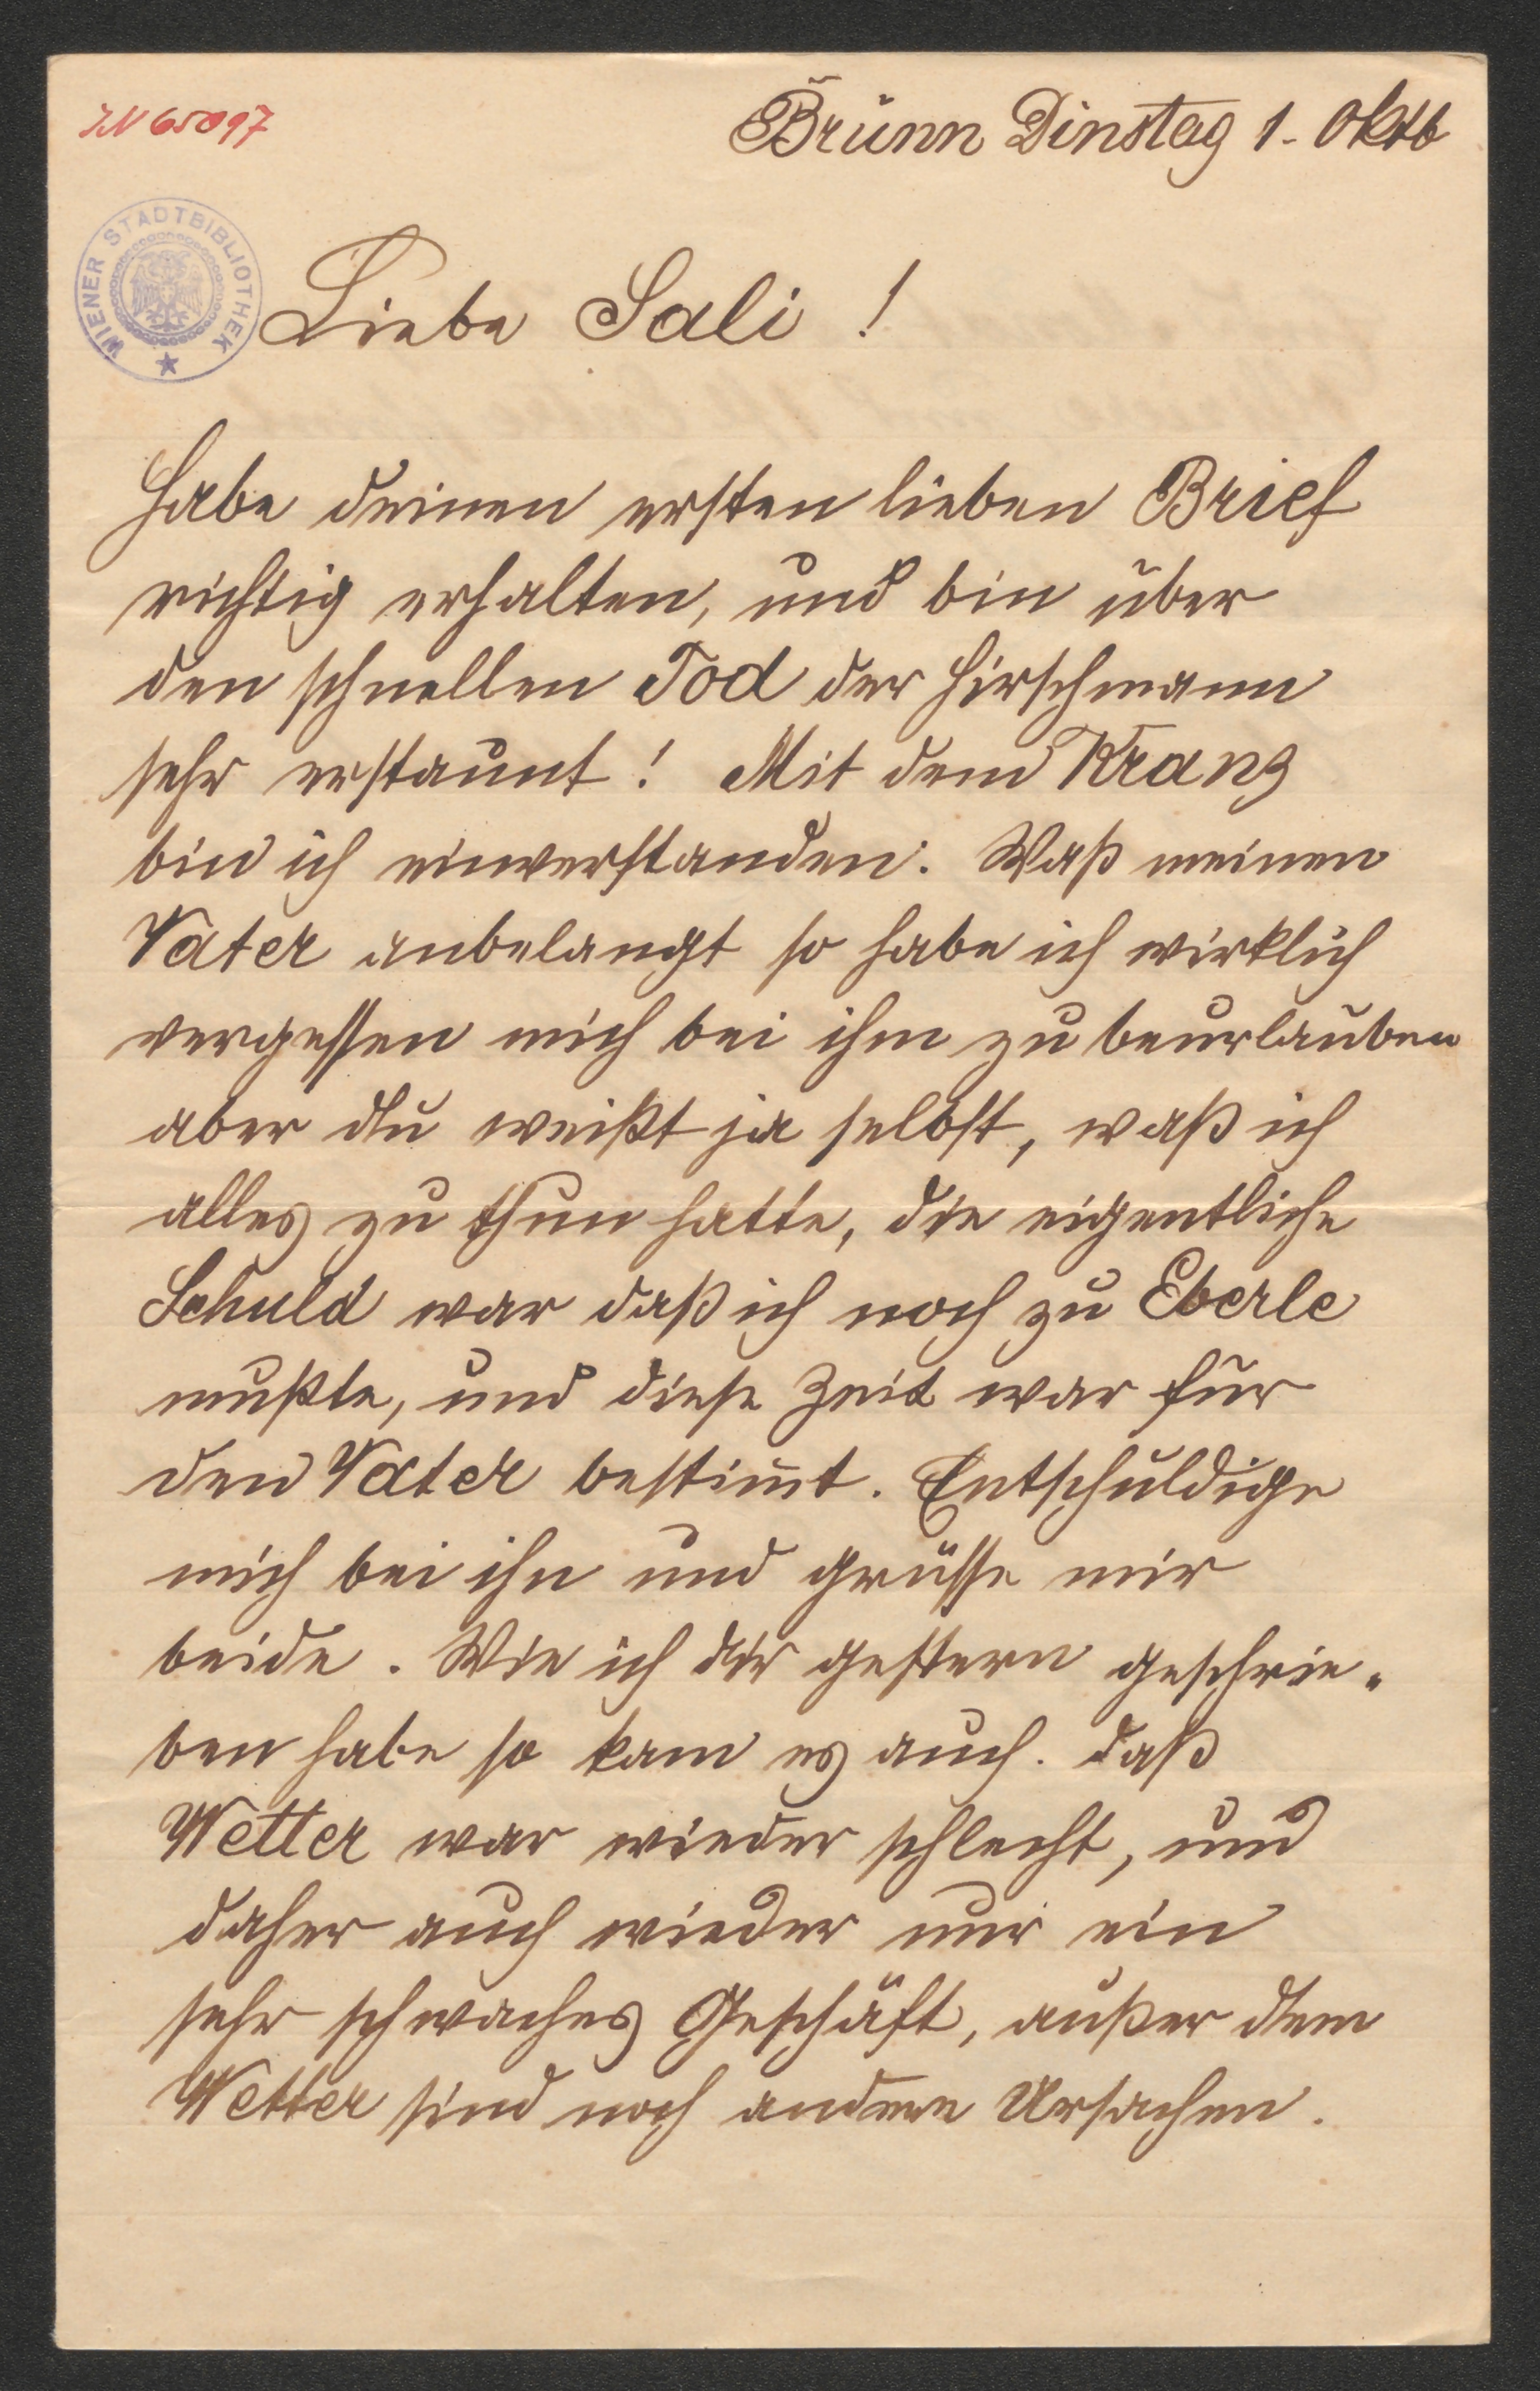 IN 65097
Brünn Dinstag 1. Oktb
WIENER STADTBIBLIOTHEK
Liebe Sali !
Habe deinen ersten lieben Brief
richtig erhalten, und bin über
den schnellen Tod der Hirschmann
sehr erstaunt ! Mit dem Kranz
bin ich einverstanden. Waß meinen
Vater anbelangt so habe ich wirklich
vergessen mich bei ihm zu beurlauben
aber du weißt ja selbst, waß ich
alles zu thun hatte, die eigentliche
Schuld war daß ich noch zu Eberle
mußte, und diese Zeit war für
den Vater bestim̄t. Entschuldige
mich bei ihn und grüsse mir
beide. Wie ich dir gestern geschrie„
ben habe so kam es auch. daß
Wetter war wieder schlecht, und
daher auch wieder nur ein
sehr schwaches Geschäft, außer dem
Wetter sind noch andere Ursachen.